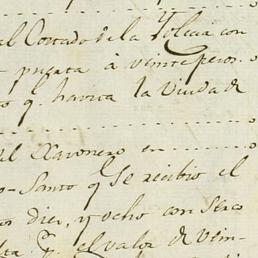 al Costado de la Yglecia con
puerta à veinte pesos
q. havita la Viuda de
el Xavonero en
Santo q. Se recibio el
dies, y ocho con Sinco
el valor de Vein-